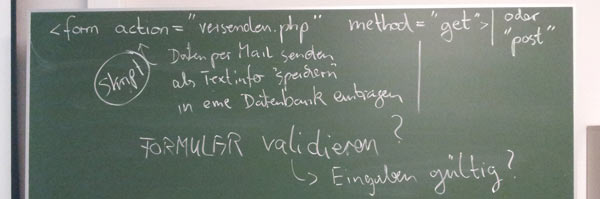 <form action="versenden.php" method="get"> | oder "post"
Skript
Daten per Mail senden
als Textinfo "speichern"
in eine Datenbank eintragen
FORMULAR validieren?
↳ Eingaben gültig?